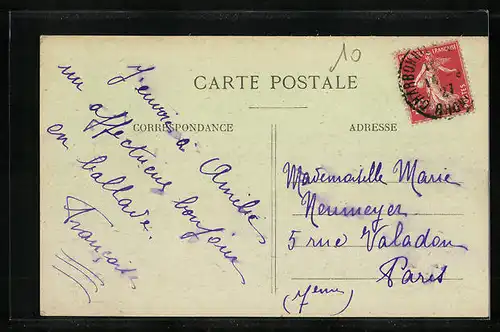 10
CARTE POSTALE
CORRESPONDANCE
ADRESSE
J'envoie à Amélie
un affectueux bonjour
en ballade.
Françoise
Mademoiselle Marie
Neumeyer
5 rue Valadon
Paris
(7eme)